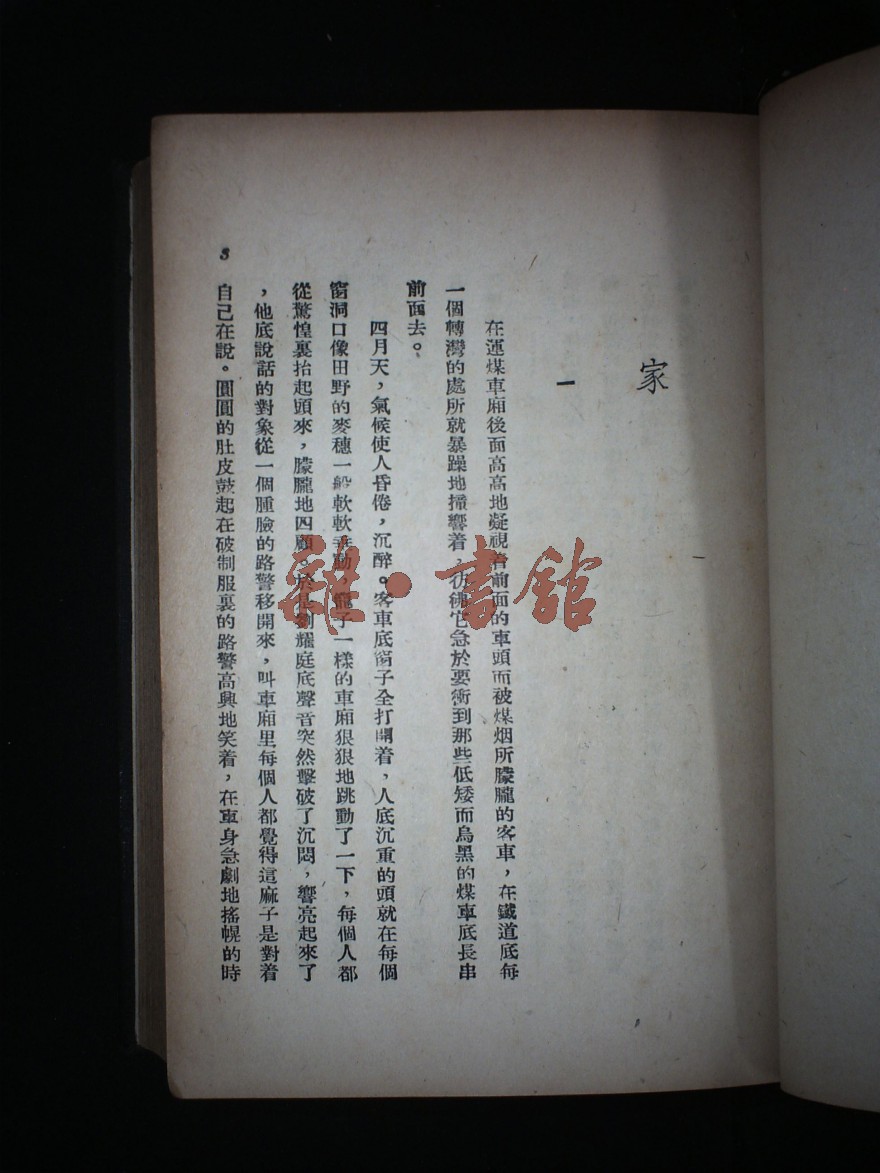 家
一
在運煤車廂後面高高地凝視着前面的車頭而被煤烟所朦朧的客車，在鐵道底每
一個轉灣的處所就暴躁地撞響着，彷彿它急於要衝到那些低矮而烏黑的煤車底長串
前面去。
四月天，氣候使人昏倦，沉醉。客車底窗子全打開着，人底沉重的頭就在每個
窗洞口像田野的麥穗一般軟軟垂動，籠子一樣的車廂狠狠地跳動了一下，每個人都
從驚惶裏抬起頭來，朦朧地四顧。於是劉耀庭底聲音突然擊破了沉悶，響亮起來了
，他底說話的對象從一個腫臉的路警移開來，叫車廂里每個人都覺得這麻子是對着
自己在說。圓圓的肚皮鼓起在破制服裏的路警高興地笑着，在車身急劇地搖幌的時
3
雜·書館